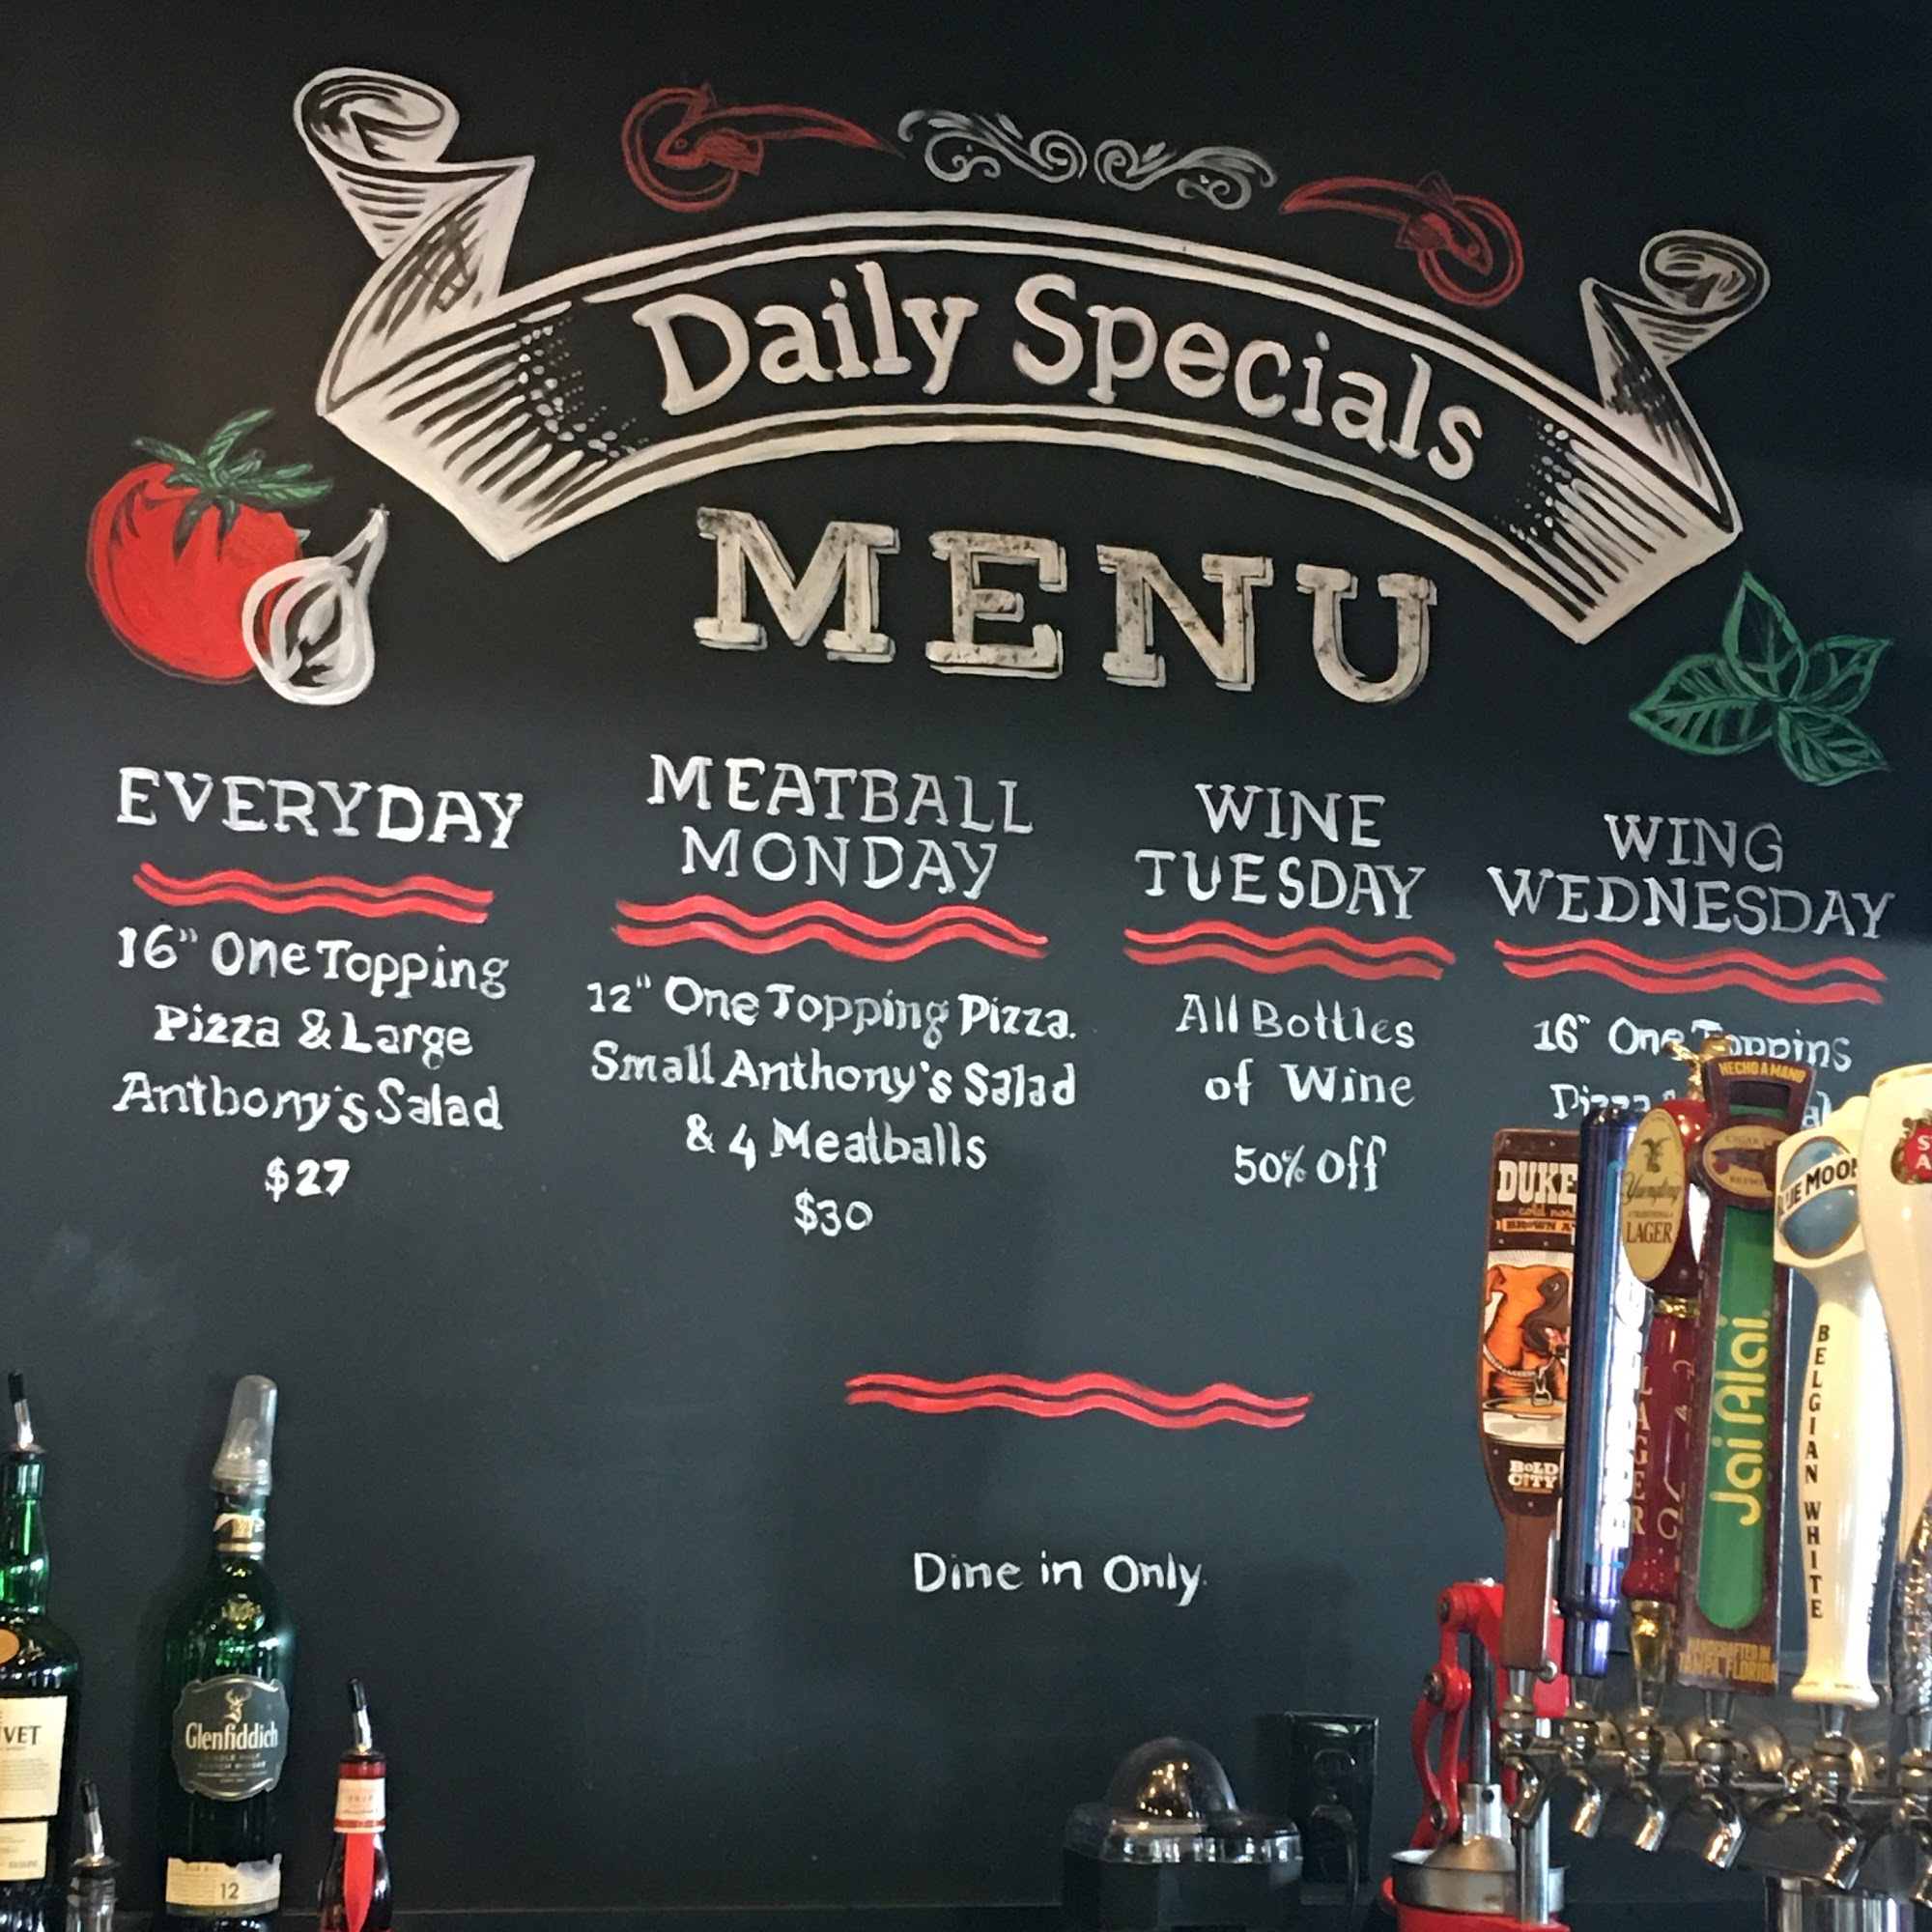 Daily Specials
MENU
EVERYDAY
16" One Topping
Pizza & Large
Anthony's Salad
$27
MEATBALL
MONDAY
12" One Topping Pizza.
Small Anthony's Salad
& 4 Meatballs
$30
WINE
TUESDAY
All Bottles
of Wine
50% Off
WING
WEDNESDAY
16" One Topping
Pizza
Dine in Only.
DUKE
BROWN
BOLD
CITY
Yuengling
TRADITIONAL
LAGER
LAGER
HECHO A MANO
CIGAR
Jai Alai
HANDCRAFTED IN
TAMPA, FLORIDA
BLUE MOON
BELGIAN WHITE
VET
Glenfiddich
SINGLE MALT
SCOTCH WHISKY
12